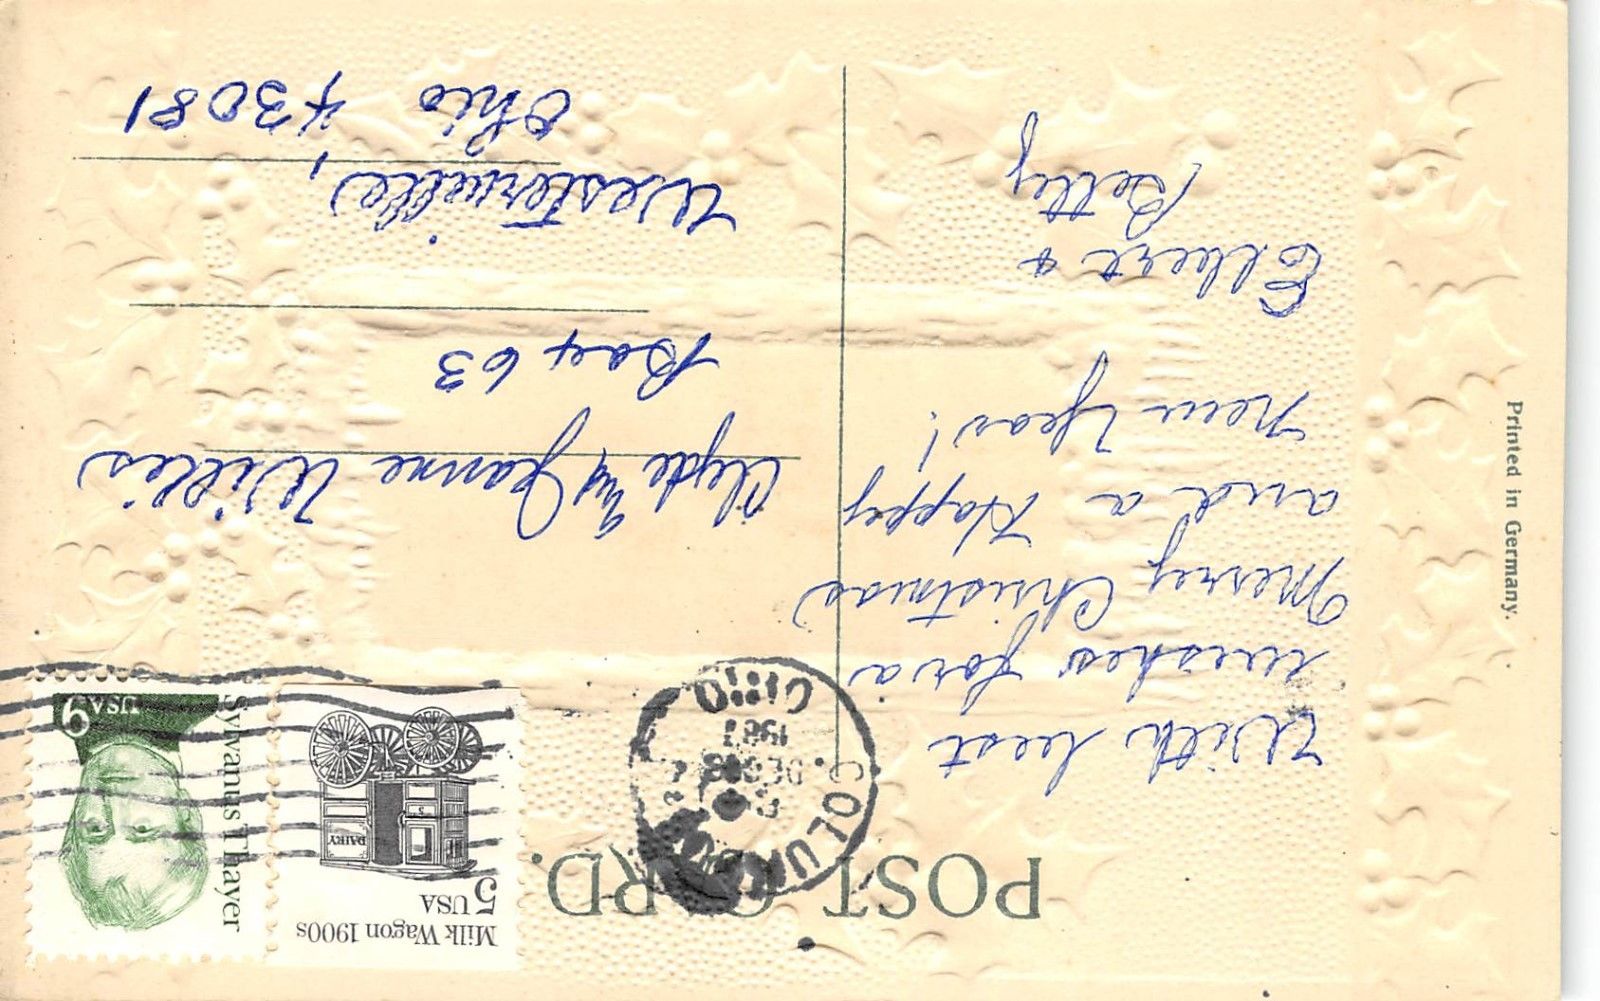 POST CARD.
With best
wishes for a
Merry Christmas
and a Happy
New Year!
Elbert &
Betty
Milk Wagon 1900s
5
USA
DAIRY
Sylvanus Thayer
USA 9
COLUMBUS
DEC
1987
OHIO
Clyde and Jeanne Willis
Box 63
Westerville,
Ohio 43081
Printed in Germany.